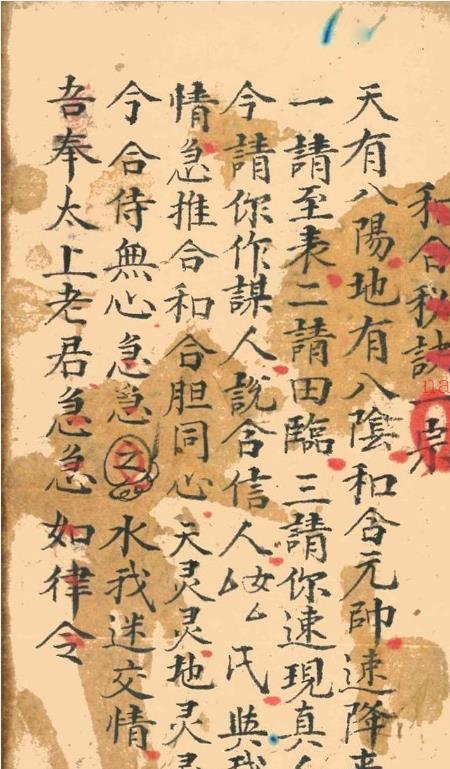 和合秘訣一宗
天有八陽地有八陰和合元帥速降来
一請至表二請田臨三請你速現真
今請你作謀人說合信人女厶氏與我
情急推合和合胆同心天灵灵地灵灵
今合侍無心急急之水我迷交情
吾奉太上老君急急如律令
na